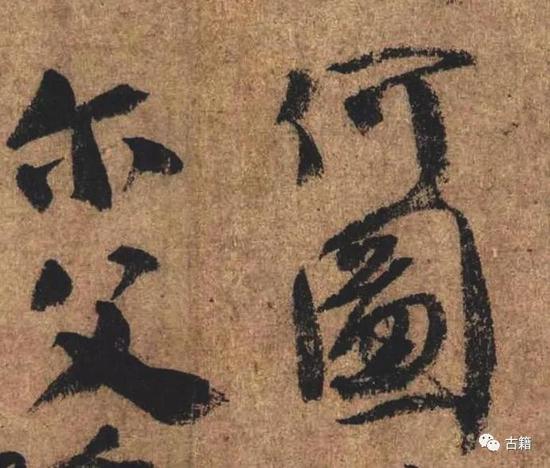 何圖
尔父
古籍